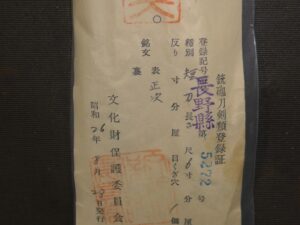 銃砲刀剣類登録証
登録記号 長野縣 第 5272 号
種別 短刀 長さ 尺 6寸 分 厘
反り 寸 分 厘 目くぎ穴 1個
銘文 表 正次
裏
昭和26年 月 日発行
文化財保護委員会